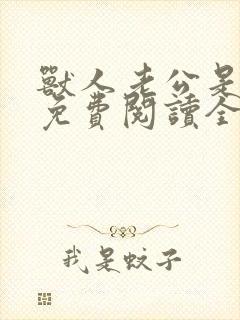 獸人老公是
免費閱讀全
我是蚊子